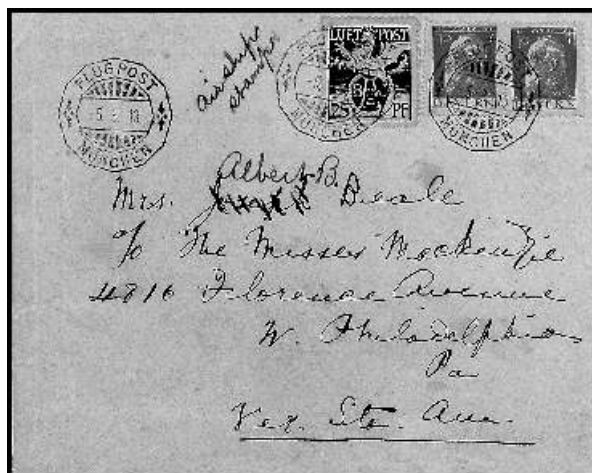 FLUGPOST
MÜNCHEN
airship
stamps
LUFT POST
25 PF
BAYERN
MÜNCHEN
MÜNCHEN
Albert B.
Mrs. Beale
c/o The Misses Mackenzie
4816 Florence Avenue
W. Philadelphia
Pa
Ver. Sta. Am.